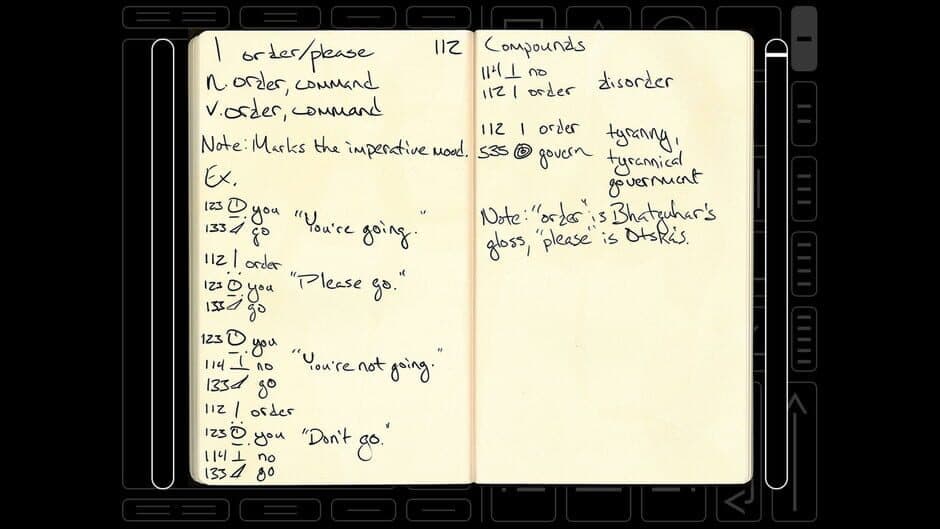 | order/please 112
n. order, command
v. order, command
Note: Marks the imperative mood.
Ex.
123 you
133 go
"You're going."
112 | order
123 you
133 go
"Please go."
123 you
114 ⊥ no
133 go
"You're not going."
112 | order
123 you
114 ⊥ no
133 go
"Don't go."
Compounds
114 ⊥ no
112 | order
disorder
112 | order
535 govern
tyranny,
tyrannical
government
Note: "order" is Bhatzuhar's
gloss, "please" is Otskás.